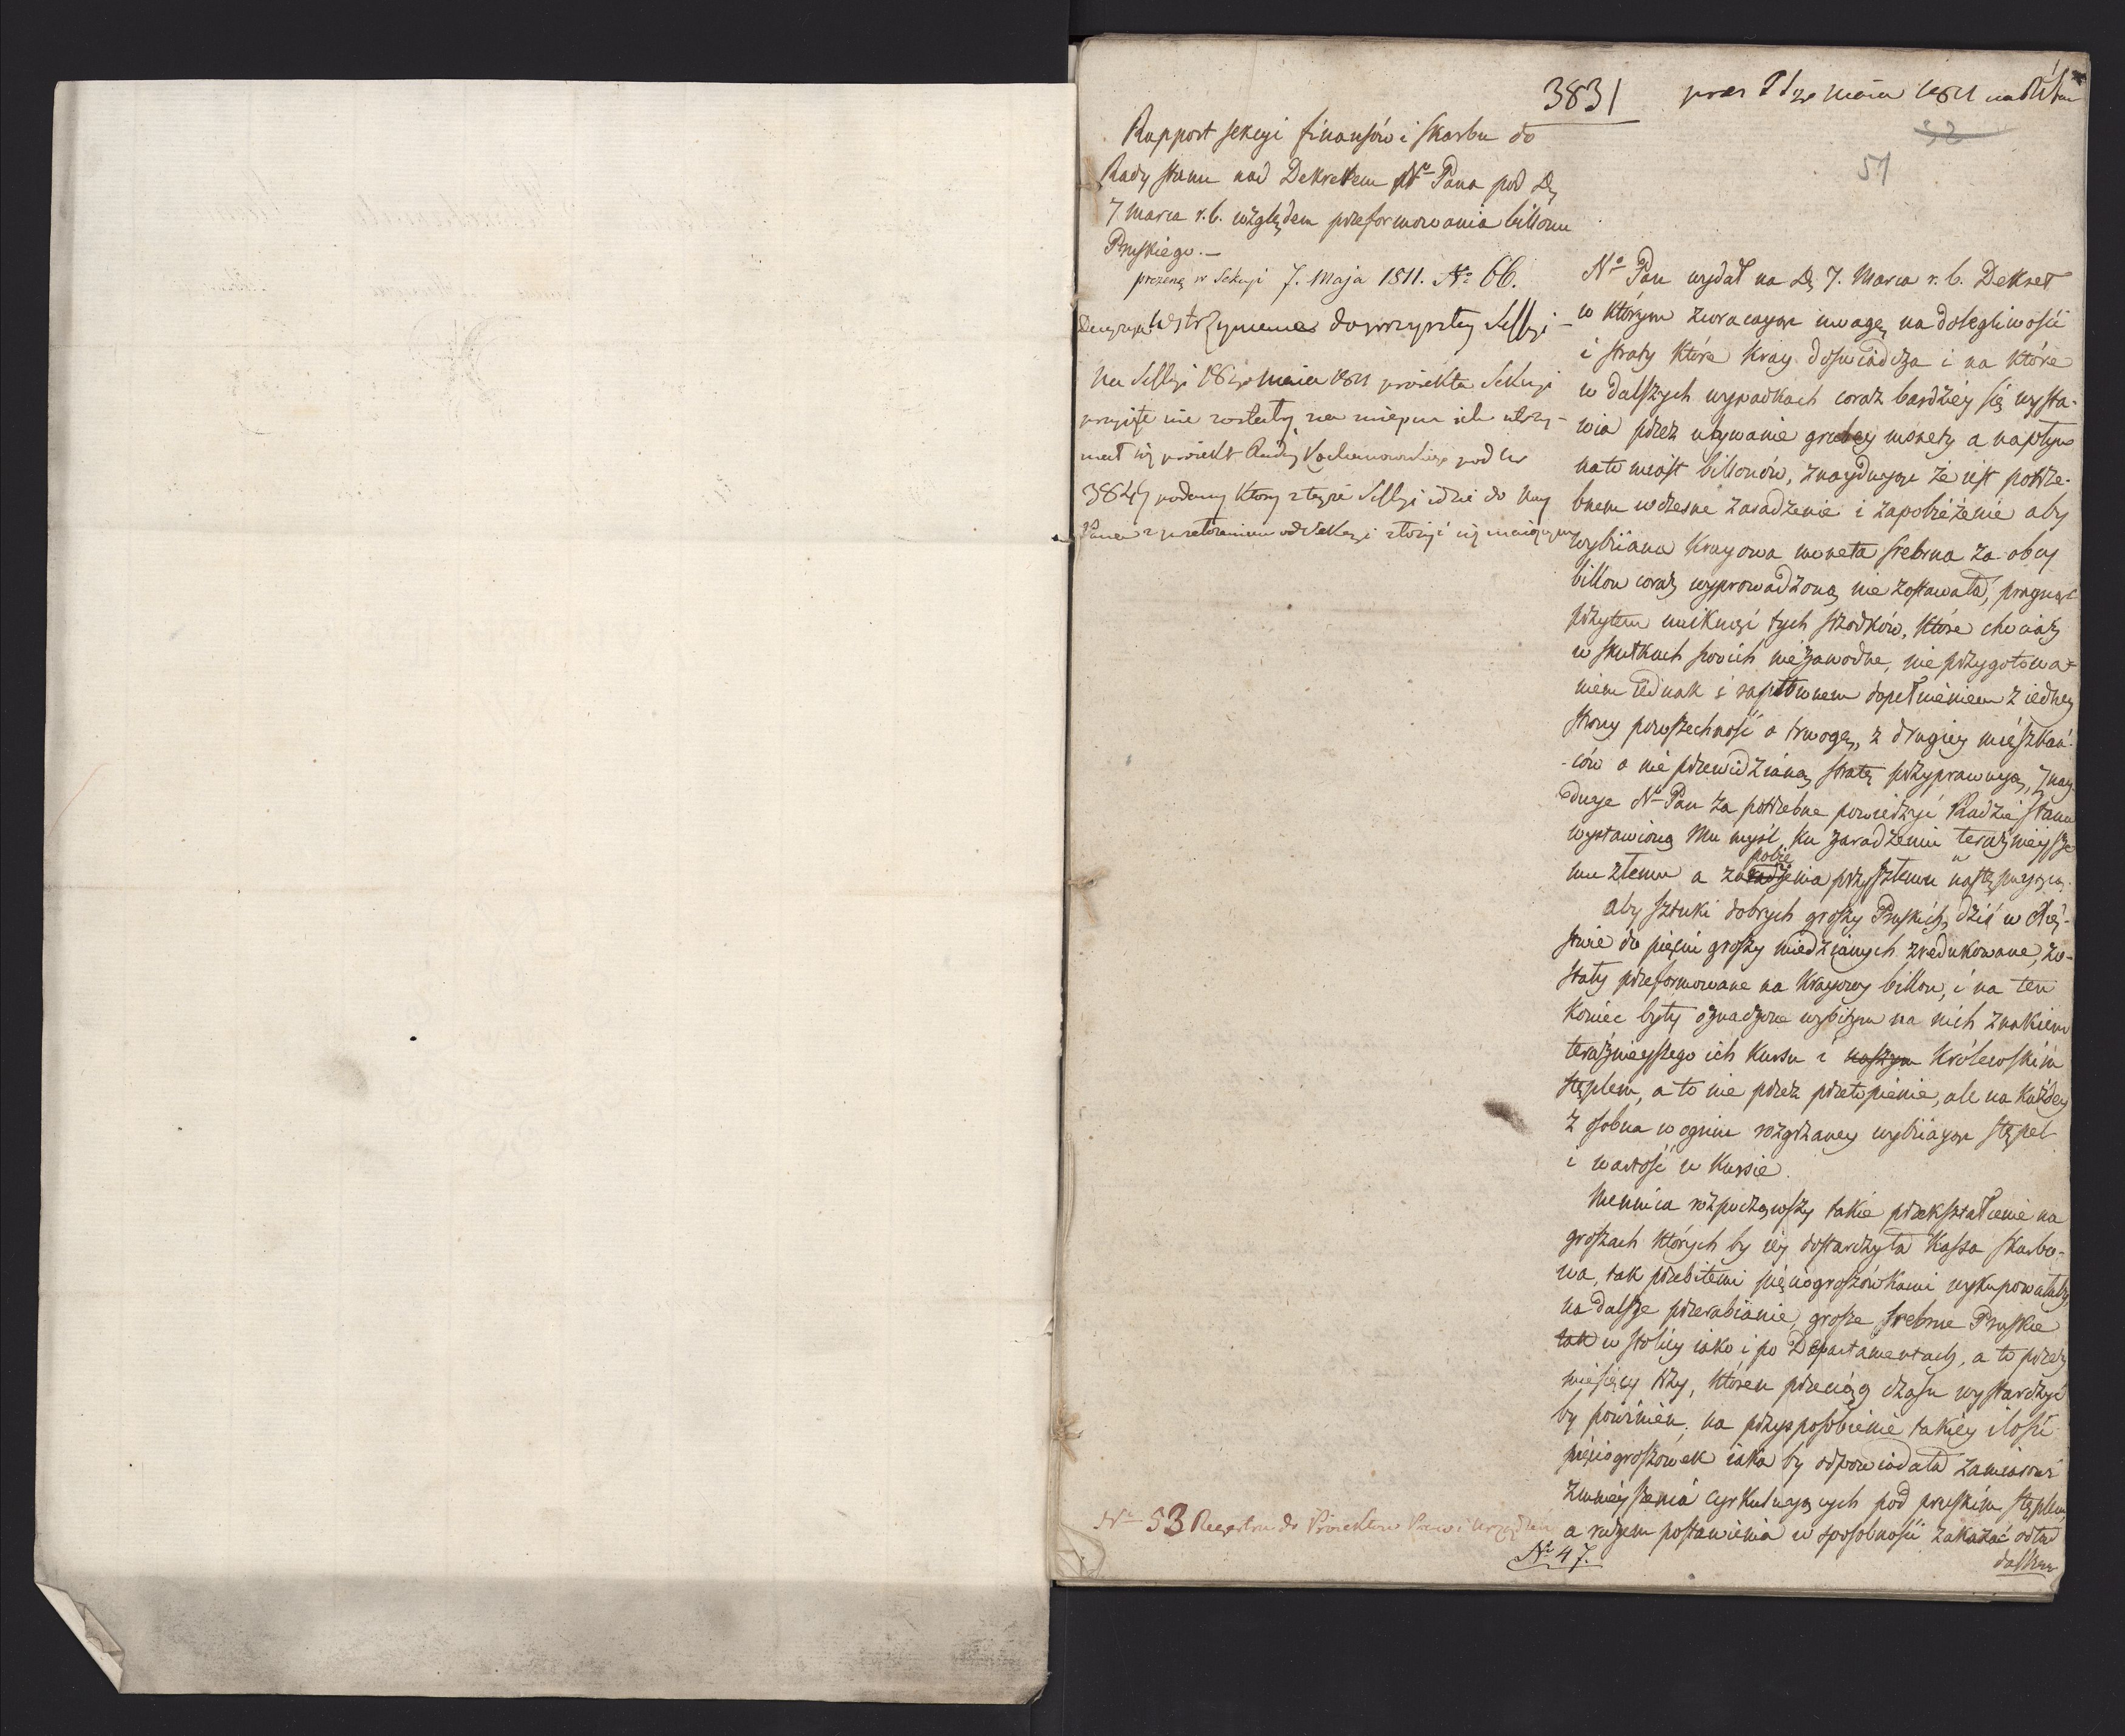 3831
52
51
Rapport sekcyi finansów i skarbu do
Rady stanu nad Dekretem N° Pana pod D.
7 Marca r.b. względem przeformowania billonu
Pruskiego.—
w Sekcyi 7. Maja 1811. N° 66.
Na Sessyi maia 1811 Sekcyi
nie zostały, na ich
projekt Rady Kochanowskiego pod
podany który z teyże Sessyi idzie do Nay
Pana od Sekcyi
N° Pan wydał na D. 7. Marca r.b. Dekret
w którym zwracając uwagę na dolegliwości
i straty które kray doświadcza i na które
w dalszych wypadkach coraz bardziéy się wysta-
wia przez ubywanie grubey monety a napływ
nato miast billonów, znayduiąc że iest potrze-
bnem wczesne zaradzenie i zapobieżenie aby
wybiiana Kraiowa moneta srebrna za obcy
billon coraz wyprowadzoną nie zostawała, pragnąc
przytem uniknąć tych srzodków, które chociaż
w skutkach swoich niezawodne, nie przygotowa-
niem iednak i rapttownem dopełnieniem z iedney
strony powszechność o trwogę, z drugiey mieszkań-
-ców o nie przewidzianą stratę przyprawuią, znay-
duie N° Pan za potrzebne powierzyć Radzie stanu
wystawioną Mu myśl ku zaradzeniu teraznieysze-
pobie
mu złemu a zaradzenia przyszłemu następuiącą.
aby sztuki dobrych groszy Pruskich, dziś w Xię-
stwie do pięciu groszy miedzianych zredukowane, zo-
stały przeformowane na Kraiowy billon, i na ten
koniec były oznaczone wybitym na nich znakiem
teraznieyszego ich kursu i naszym Królewskim
stęplem, a to nie przez przetopienie, ale na każdey
z osobna w ogniu rozgrzaney wybiiaiąc stępel
i wartość w kursie.
Mennica rozpocząwszy takie przekształcenie na
groszach których by iey dostarczyła Kassa skarbo-
wa, tak przebitemi pięciogroszówkami wykupowałaby
na dalsze przerabianie, grosze srebrne Pruskie
tak w stolicy iako i po Departamentach, a to przez
miesięcy trzy, któren przeciąg czasu wystarczyć
by powinien, na przysposobienie takiéy ilości
pięciogroszówek iaka by odpowiadała zamiarowi
zmnieyszenia cyrkuluiących pod pruskim stęplem,
a razem postawienia w sposobności zakazać odtąd
dalszem
N° 53 Regestru do Proiektow Praw i Urządzeń
N° 47.